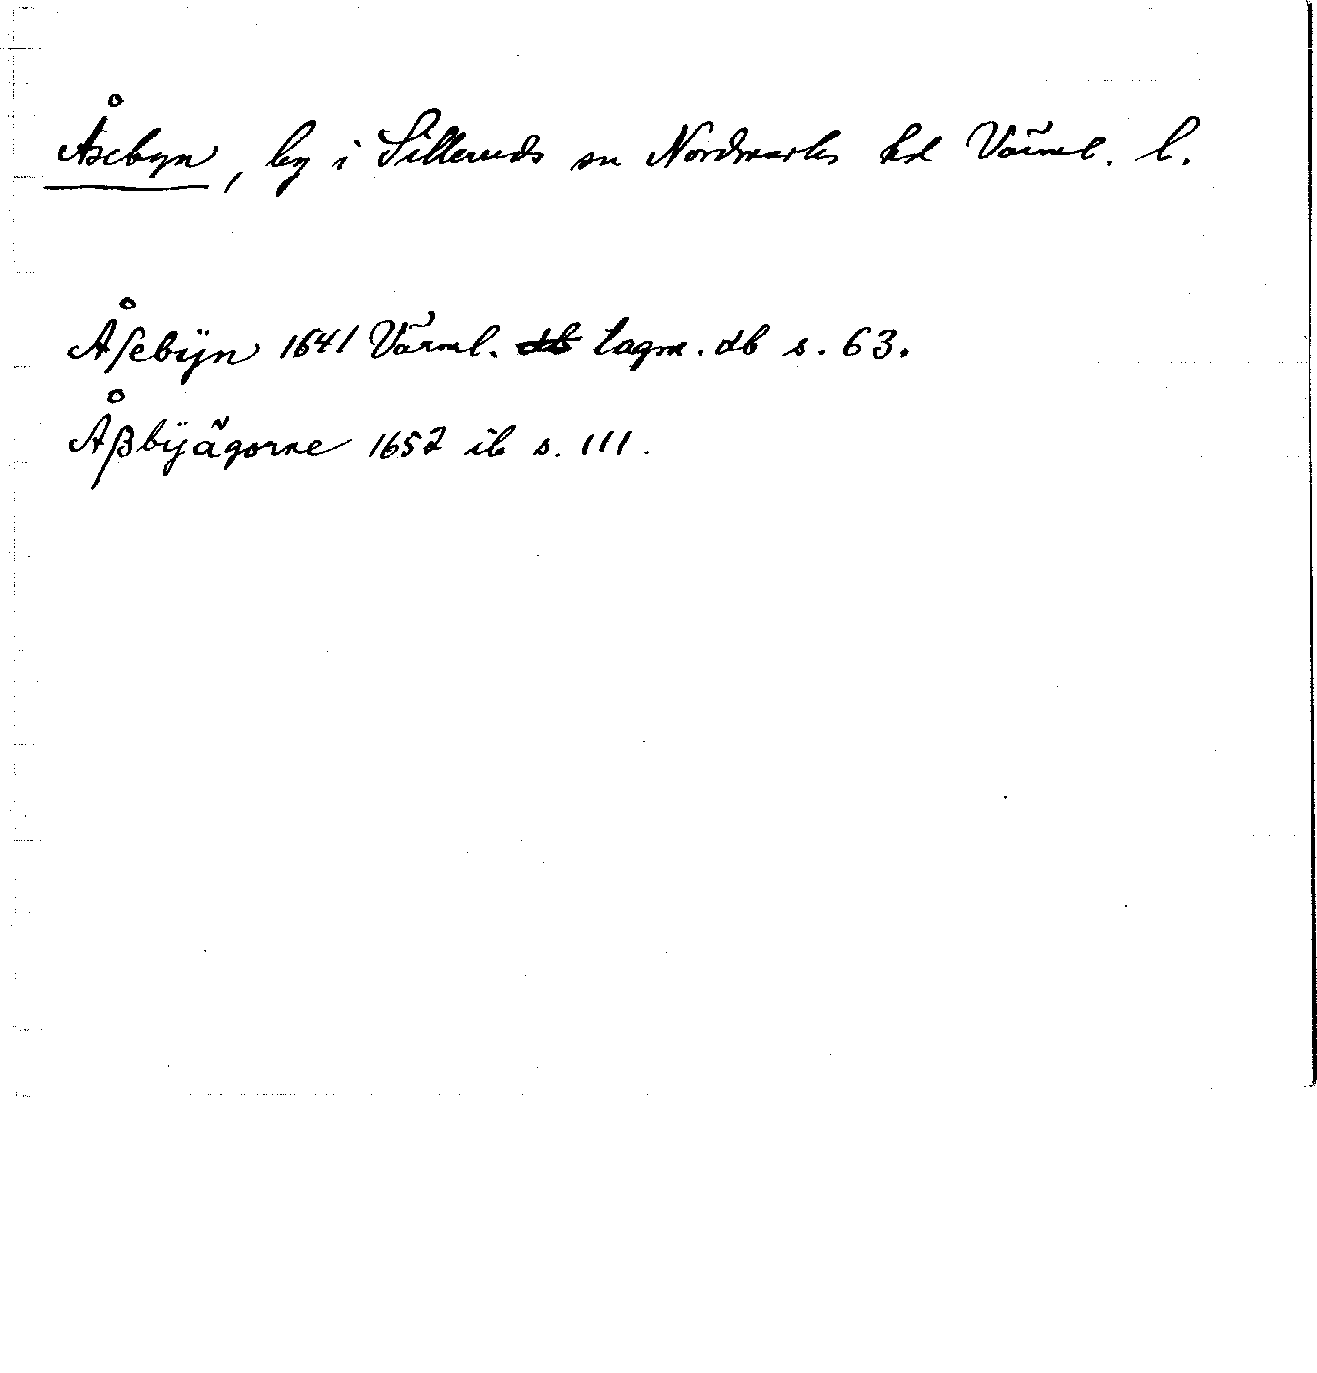 Åsebyn, by i Silleruds sn Nordmarks hd Värml. l.
Åſebÿn 1641 Värml. db lagm. db s. 63.
Åßbÿägorne 1652 ib s. 111.